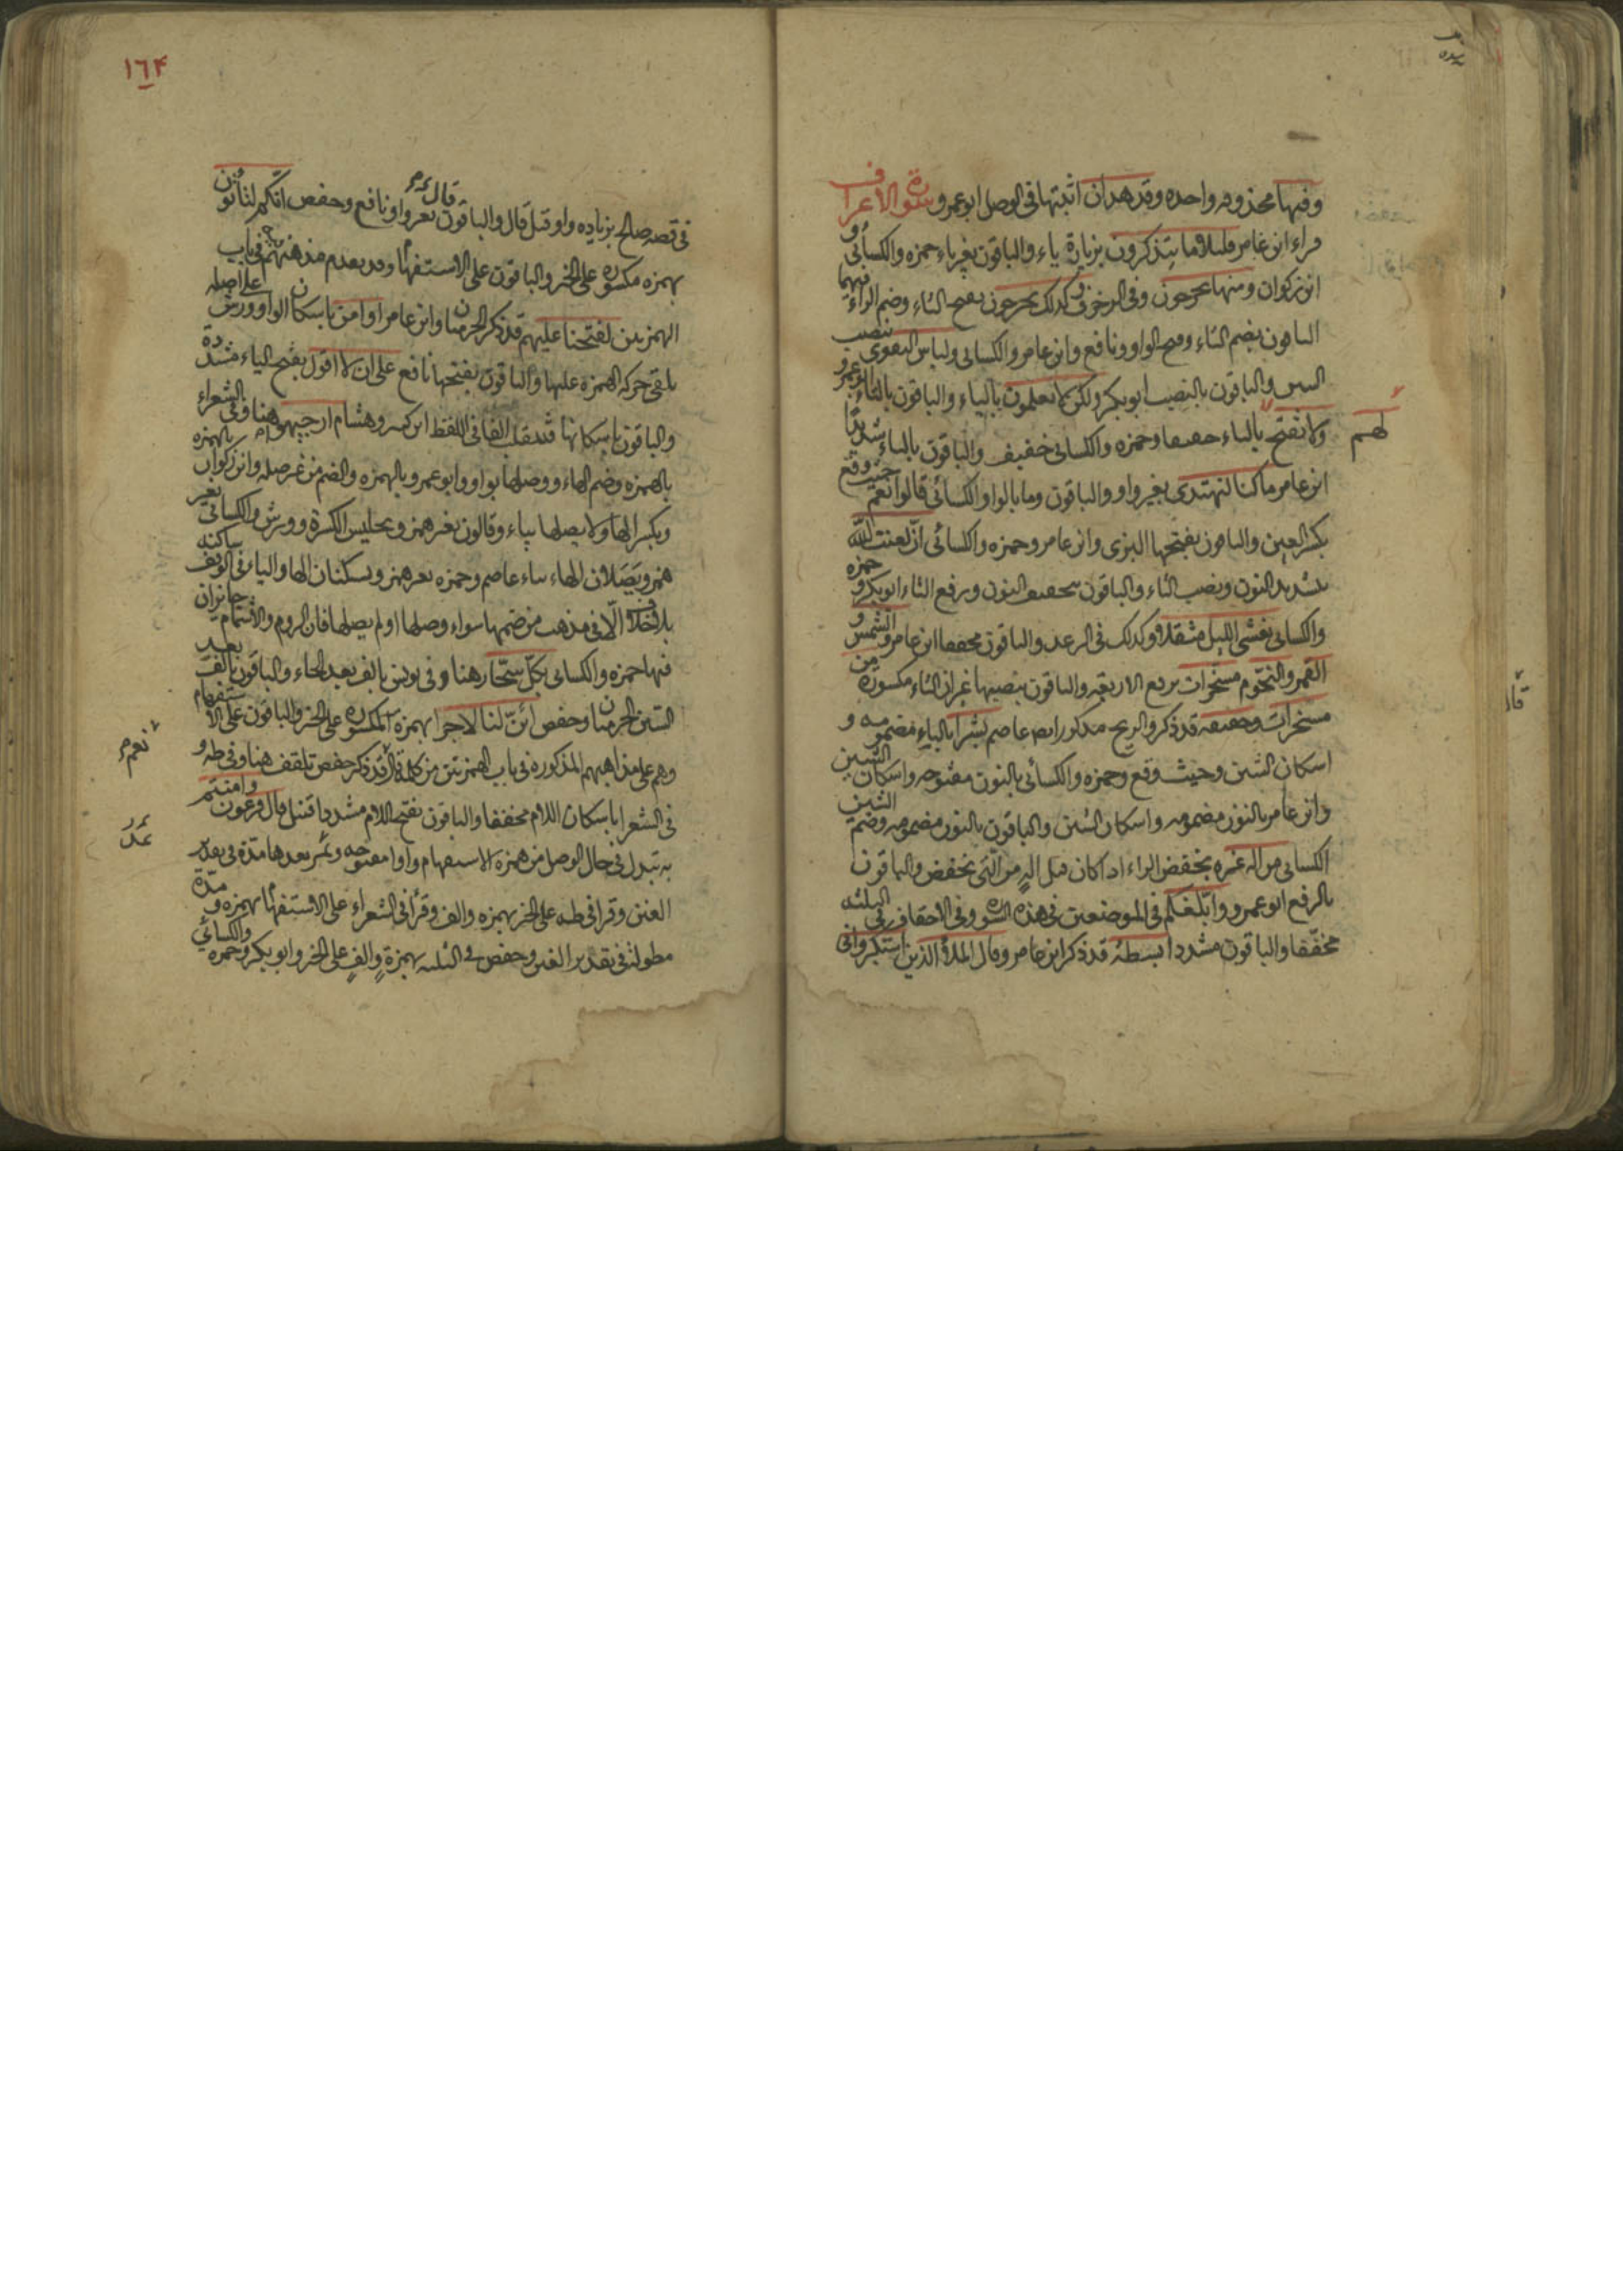 وفيها محذوفه واحده وقد هدان اثبتها في الوصل ابو عمرو سورة الاعراف
قراء ابن عامر قليلا ما يتذكرون بزيادة ياء والباقون بغير ياء حمزه والكسائى و
ابن ذكوان ومنها تخرجون وفي الزخرف وكذلك تخرجون بفتح التاء وضم الراء فيهما
الباقون بضم التاء وفتح الراء ونافع وابن عامر والكسائى ولباس التقوى بنصب
السين والباقون بالنصب ابو بكر ولكن لا تعلمون بالياء والباقون بالتاء ابو عمرو
ولا تفتح بالتاء خفيفا وحمزه والكسائى خفيف والباقون بالتاء شديدا
لهم
ابن عامر ما كنا لنهتدى بغير واو والباقون وما بالواو الكسائى قالوا نعم حيث وقع
بكسر العين والباقون بفتحها البزى وابن عامر وحمزه والكسائى ان لعنت الله
بتشديد النون ونصب التاء والباقون بتخفيف النون ورفع التاء ابو بكر و حمزه
والكسائى يغشى الليل مثقلا وكذلك في الرعد والباقون مخففا ابن عامر والشمس و
القمر والنجوم مسخرات برفع الاربعة والباقون بنصبها غير ان التاء مكسورة من
مسخرات وخفيه قد ذكر والريح مذكور ايضا عاصم بشرا بالباء مضمومه و
اسكان الشين وحيث وقع وحمزه والكسائى بالنون مفتوحه واسكان الشين
وابن عامر بالنون مضمومه واسكان الشين والباقون بالنون مضمومه وضم الشين
الكسائى من اله غيره بخفض الراء اذا كان قبل اله من التى تخفض والباقون
بالرفع ابو عمرو وابلغكم في الموضعين في هذه السورة وفي الاحقاف في الثلثه
مخففا والباقون مشددا بسطة قد ذكر ابن عامر وقال الملأ الذين استكبروا في
١٦۴
في قصه صالح بزياده واو قبل قال والباقون قال بغير واو نافع وحفص انكم لتأتون
بهمزه مكسوره على الخبر والباقون على الاستفهام وقد تقدم مذهبهم في باب
الهمزتين لفتحنا عليهم قد ذكر الحرميان وابن عامر او امن باسكان الواو وورش على اصله
يلقى حركه الهمزه عليها والباقون بفتحها نافع على ان لا اقول بفتح الياء مشددة
والباقون باسكانها فتنقلب الفا في اللفظ ابن كثير وهشام ارجئهو هنا وفي الشعراء
بالهمزه وضم الهاء ووصلها بواو وابو عمرو بالهمزه والضم من غير صله وابن ذكوان بالهمزه
وبكسر الها ولا يصلها بياء وقالون بغير همز وبختلس الكسرة وورش والكسائى بغير
همز ويصلان الهاء بياء عاصم وحمزه بغير همز ويسكنان الها والياء في الوقف ساكنه
بلا خلاف الا في مذهب من ضمها سواء وصلها او لم يصلها فان الروم والاشمام جايزان
فيها حمزه والكسائى بكل سحار هنا وفي يونس بالف بعد الحاء والباقون بالف بعد
السين الحرميان وحفص ائن لنا لاجرا بهمزة المكسوره على الخبر والباقون على الاستفهام
وهم على مذاهبهم المذكوره في باب الهمزتين من كلمة قد ذكر حفص تلقف هنا وفي طه و
نعم
في الشعرا باسكان اللام مخففا والباقون بفتح اللام مشددا قنبل قال فرعون وامنتم
به تبدل في حال الوصل من همزه الاستفهام واوا مفتوحه ويمد بعدها مدة في تقدير
العين وقرا في طه على الخبر بهمزه والف وقرأ في الشعراء على الاستفهام بهمزه و مدة
مطولة في تقدير الفين وحفص في الثلثه بهمزة والف على الخبر وابو بكر وحمزه والكسائي